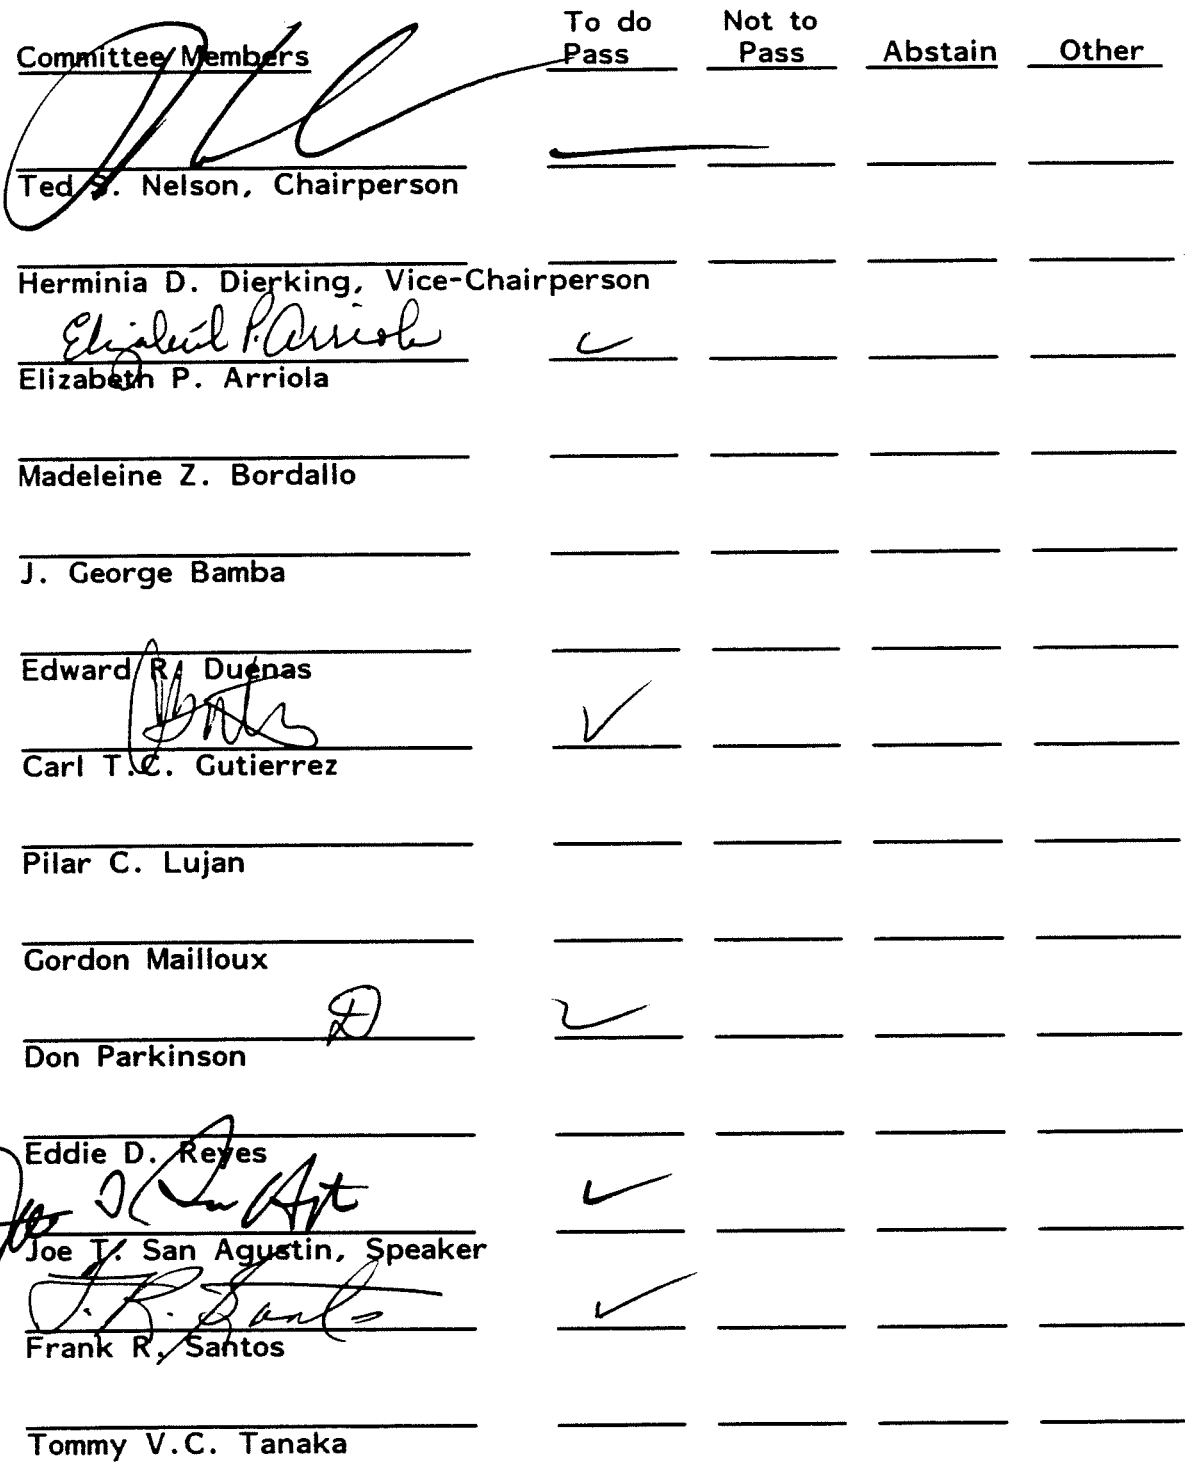 To do Not to
Committee Members Pass Pass Abstain Other
Ted S. Nelson, Chairperson
Herminia D. Dierking, Vice-Chairperson
Elizabeth P. Arriola
Elizabeth P. Arriola
Madeleine Z. Bordallo
J. George Bamba
Edward R. Duenas
Carl T.C. Gutierrez
Pilar C. Lujan
Gordon Mailloux
Don Parkinson
Eddie D. Reyes
Joe T. San Agustin, Speaker
F. R. Santos
Frank R. Santos
Tommy V.C. Tanaka